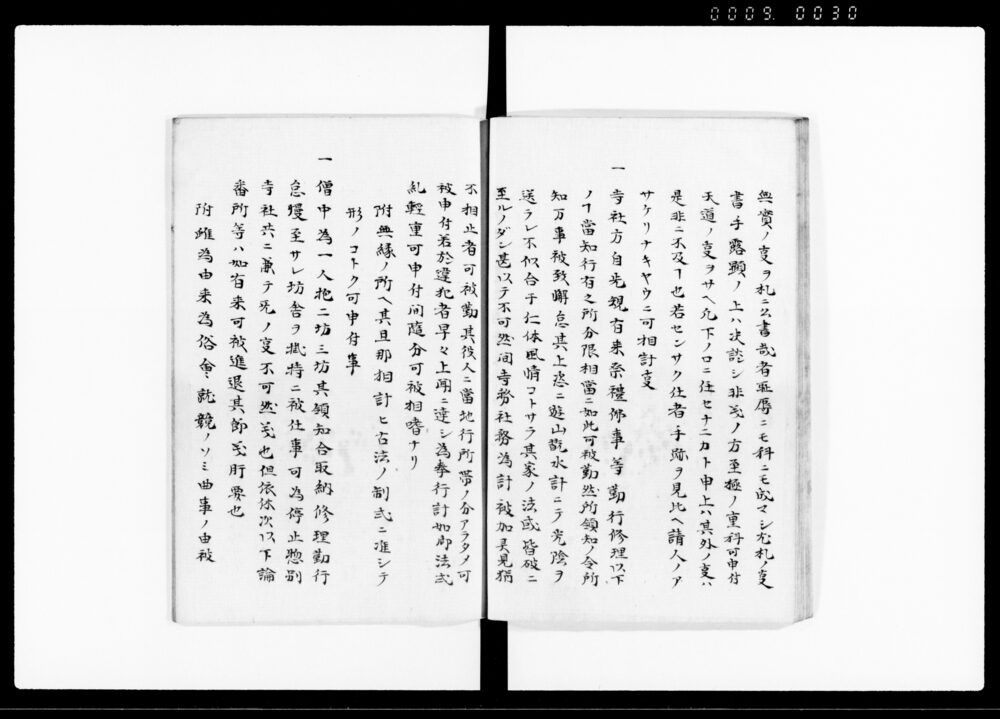 0009. 0030
無實ノ事ヲ札ニ公書哉者耻辱ニモ科ニモ成マシ尤札ノ事
書手露顕ノ上ハ决談シ非義ノ方至極ノ重科可申付
天道ノ事ヲサヘ凢下ノ口ニ任セナニカト申上ハ其外ノ事ハ
是非ニ不及丁也若センサク仕者手跡ヲ見比ヘ請人ノア
サケリナキヤウニ可相計事
一 寺社方自先規有来祭禮佛事等勤行修理以下
ノ丁當知行有之所分限相當ニ如此可被勤然所領知ノ令所
知万事被致懈怠其上恣ニ遊山翫水計ニテ光陰ヲ
送テレ不似合于仁体風情コトサラ其家ノ法或皆破ニ
至ルノダン甚以テ不可然间寺務社務為計被加異見猶
不相止者可被勤其役人ニ當地行所帶ノ分アラタメ可
被申付若於違犯者早々上聞ニ達シ為奉行計如御法式
糺輕重可申付间隨分可被相嗜ナリ
附無縁ノ所ヘ其旦那相計ヒ古法ノ制式ニ准シテ
形ノコトク可申付事
一 僧中為一人抱二坊三坊其領知合取納修理勤行
怠慢至サレ坊舎ヲ拭持ニ被仕事可為停止惣別
寺社共ニ兼テ死ノ事不可然義也但依依次以下論
番所等ハ如有来可被進退其節義肝要也
附雖為由来為俗會就競ノソミ曲事ノ由被